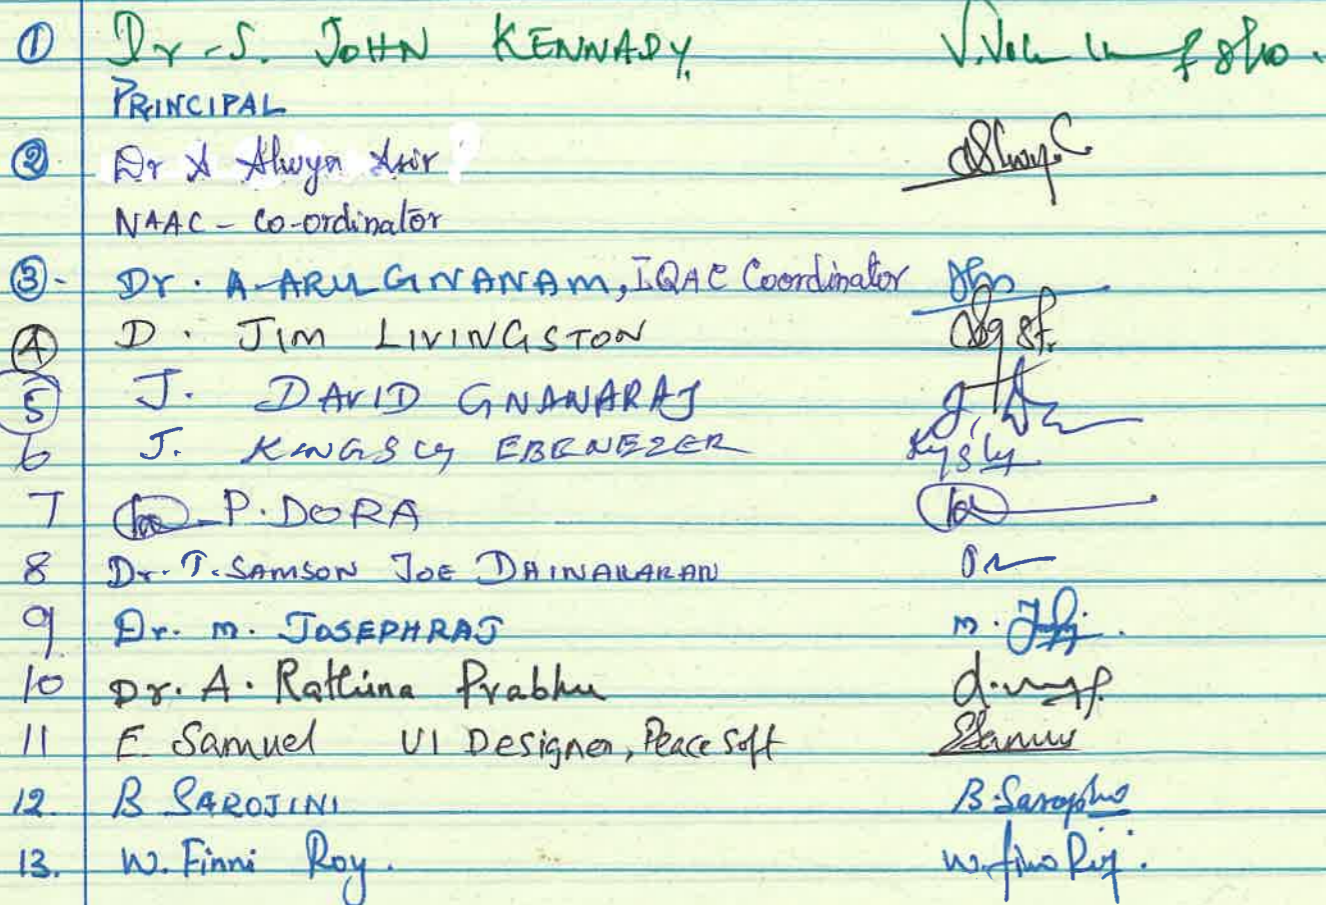 ① Dr. S. JOHN KENNADY.
PRINCIPAL
② Dr A Alwyn Asir
NAAC - Co-ordinator
③ - Dr. A. ARUL GNANAM, IQAC Coordinator
④ D. JIM LIVINGSTON
⑤ J. DAVID GNANARAJ
6 J. KINGSLY EBENEZER Kingsly
7 P. DORA
8 Dr. T. SAMSON JOE DHINAKARAN
9 Dr. M. JOSEPHRAJ
10 Dr. A. Rathina Prabhu
11 E. Samuel UI Designer, Peace Soft
12. B SAROJINI
13. W. Finni Roy.